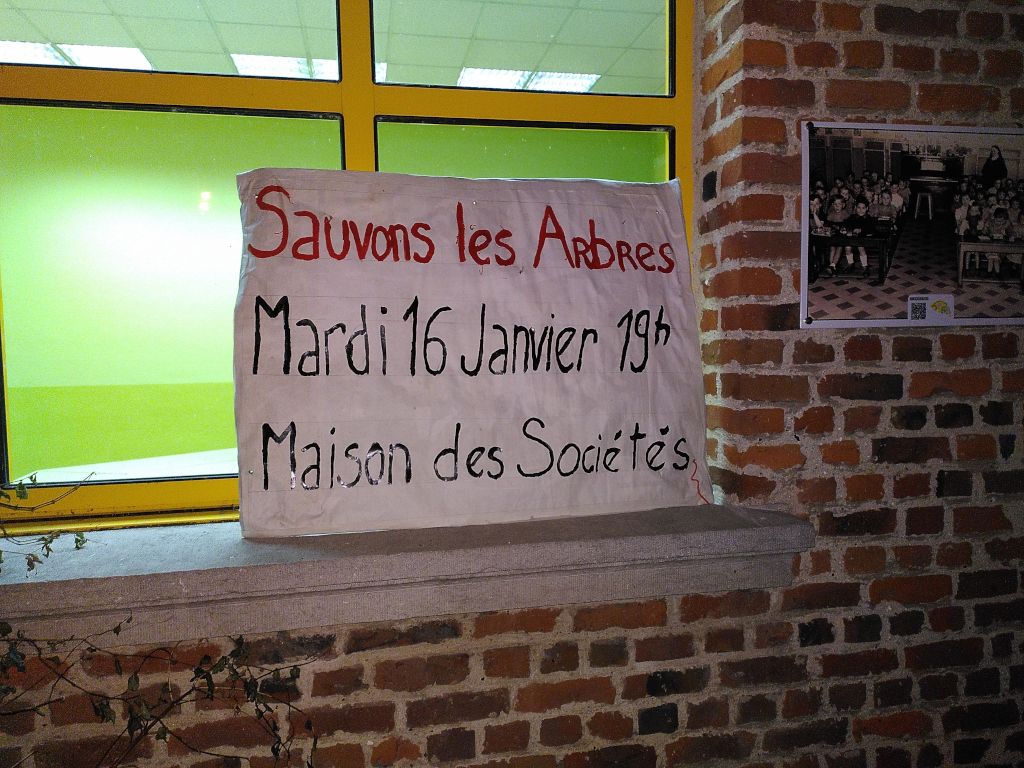 Sauvons les Arbres
Mardi 16 Janvier 19h
Maison des Sociétés